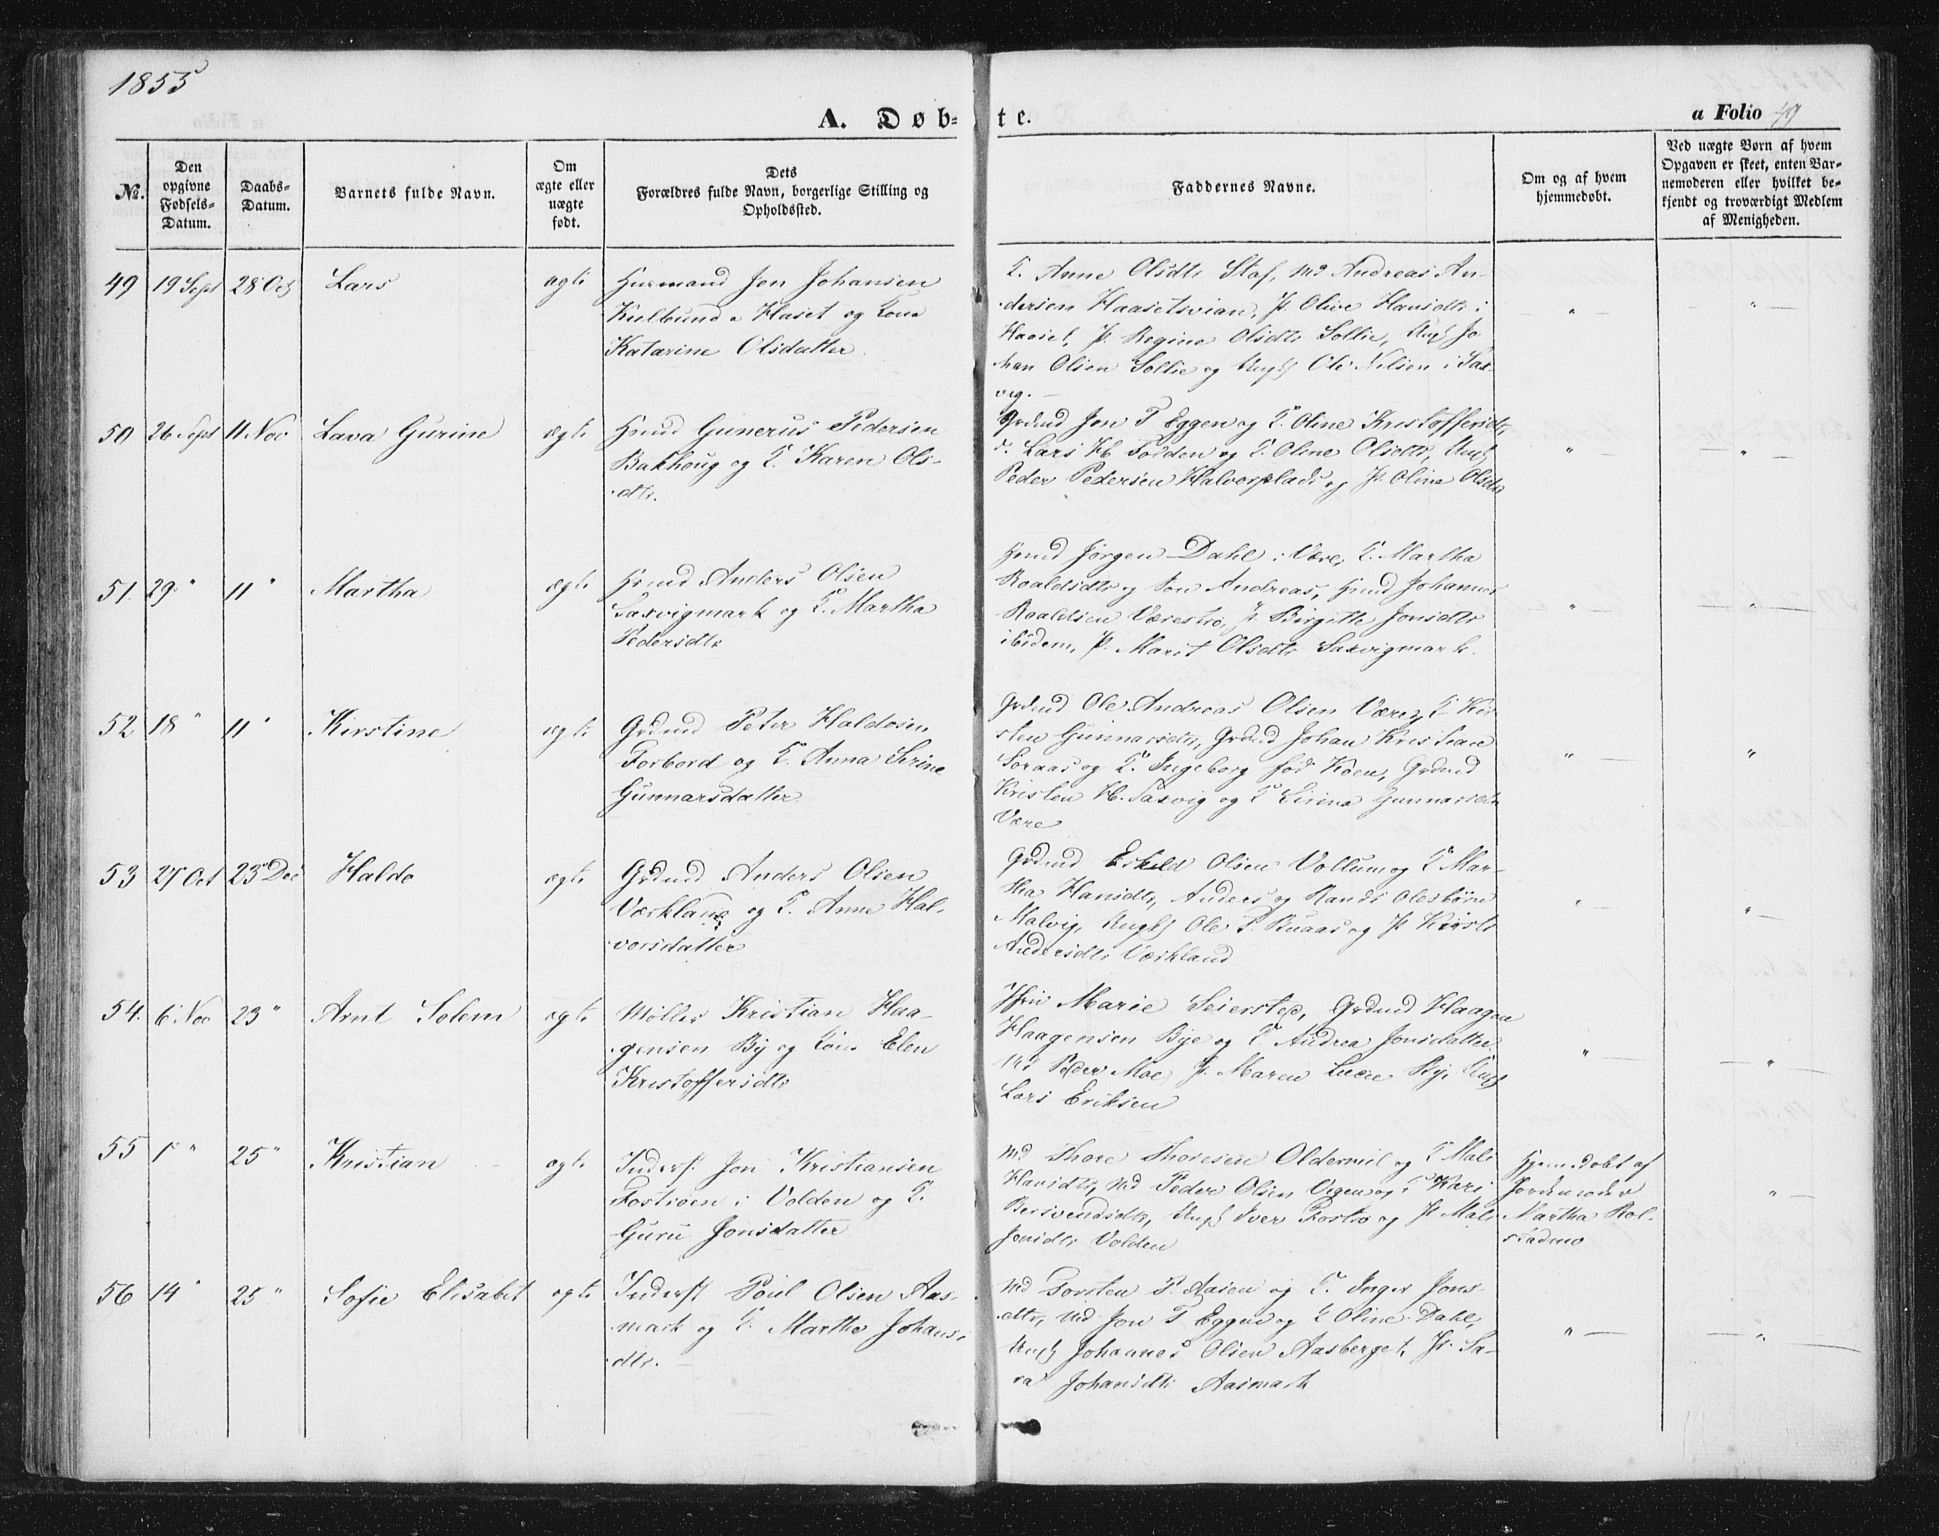 1855
A. Døb-
te.
a Folio 49
No.
Den
opgivne
Fødsels-
Datum.
Daabs-
Datum.
Barnets fulde Navn.
Om
ægte eller
uægte
født.
Dets
Forældres fulde Navn, borgerlige Stilling og
Opholdssted.
Faddernes Navne.
Om og af hvem
hjemmedøbt.
Ved uægte Børn af hvem
Opgaven er skeet, enten Bar-
nemoderen eller hvilket be-
kjendt og troværdigt Medlem
af Menigheden.
49 19 Sept 28 Oct Lars ægte
Husmand Jon Johansen
Haset og Kone
Katarine Olsdatter
K. Anne Olsdtr Staf, Md Andreas An-
dersen Haasetsvian, P. Olive Hansdtr i
Haaset, P. Regine Olsdtr Sollie, Ungk Jo
han Olsen Sollie og Ungk Ole Nilsen i Sax-
vig.
50 26 Sept 11 Nov Lava Gurine ægte
Hmd Gunerus Pedersen
Bakhoug og K. Karen Ols-
dtr.
Grdmd Jon T Eggen og K. Oline Kristoffersdtr,
Lars H. Folden og K. Oline Olsdtr, Ungk
Peder Pedersen Halvorplads og P. Oline Olsdtr
51. 29 " 11 " Martha ægte
Hmd Anders Olsen
Saxvigmark og K. Martha
Pedersdtr
Hmd Jørgen Dahl i Være, K. Martha
Roaldsdtr og Søn Andreas, Hmd Johannes
Roaldsen Værestrø, P. Birgitte Jonsdtr
ibidem, P. Marit Olsdtr Saxvigmark.
52 18 " 11 " Kirstine ægte
Grdmd Peter Haldosen
Forbord og K. Anna Serine
Gunnarsdatter
Grdmd Ole Andreas Olsen Være, K Kir
sten Gunnarsdtr, Grdmd Johan Kristian
Soraas og K. Ingeborg fød Koen, Grdmd
Kristen H. Saxvig og K Sirina Gunnarsdtr
Være
53 27 Oct 23 Dec Haldo ægte
Grdmd Anders Olsen
Værkland og K. Anne Hal-
vorsdatter
Grdmd Eskild Olsen Vollum og K Mar-
tha Hansdtr, Anders og Randi Olesbørn
Malvig, Ungk Ole T. Buaas og P Kirsti
Andersdtr Værkland
54. 6 Nov 23 " Arnt Solem ægte
Møller Kristian Haa-
gensen By og Kone Elen
Kristoffersdtr
Jfru Marie Seiersted, Grdmd Haagen
Haagensen Bye og K Andrea Jonsdatter
Md Peder Moe, P. Maren Lucie By, Ungk
Lars Eriksen
55 1 " 25 " Kristian ægte
Inderst Jon Kristiansen
Fostroen i Volden og K.
Guru Jonsdatter
Md Thore Thoresen Oldermil og K Mali
Hansdtr, Md Peder Olsen og K Kari
Bersvendsdtr, Ungk Iver Fostro og P Mali
Jonsdtr Volden
Hjemdøbt af
Jordemoder
Martha Rol-
stadmo
56 14 " 25 " Sofie Elisabet ægte
Inderst Poul Olsen Aas-
mark og K. Martha Johans-
dtr.
Md Torsten P. Aasen og K. Inger Jons-
dtr, Md Jon T Eggen og K Oline Dahl,
Ungk Johannes Olsen Aasberget, P. Sa-
ra Johansdtr Aasmark